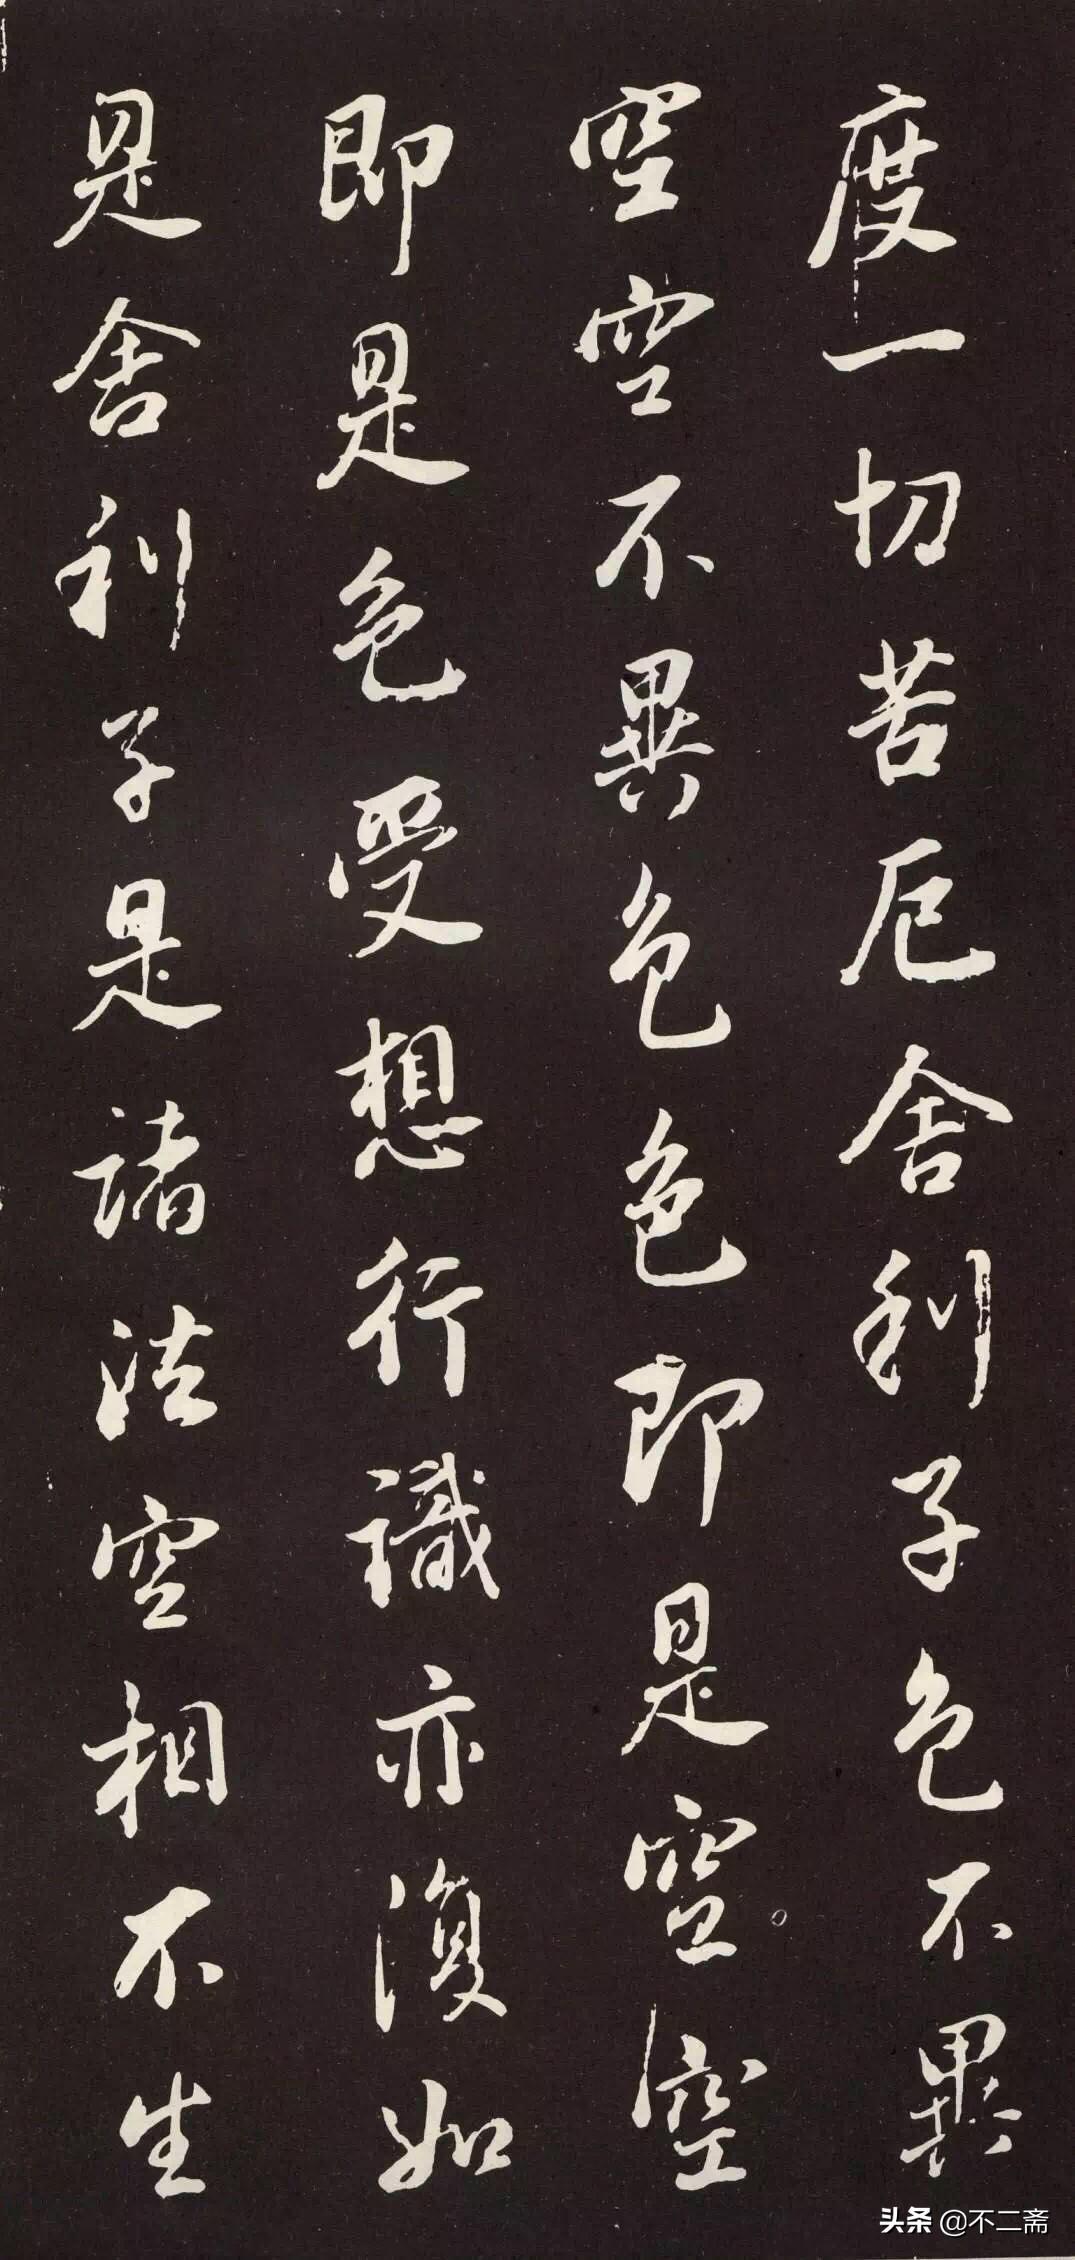 度一切苦厄舍利子色不異
空空不異色色即是空空
即是色受想行識亦復如
是舍利子是諸法空相不生
头条 @不二斋